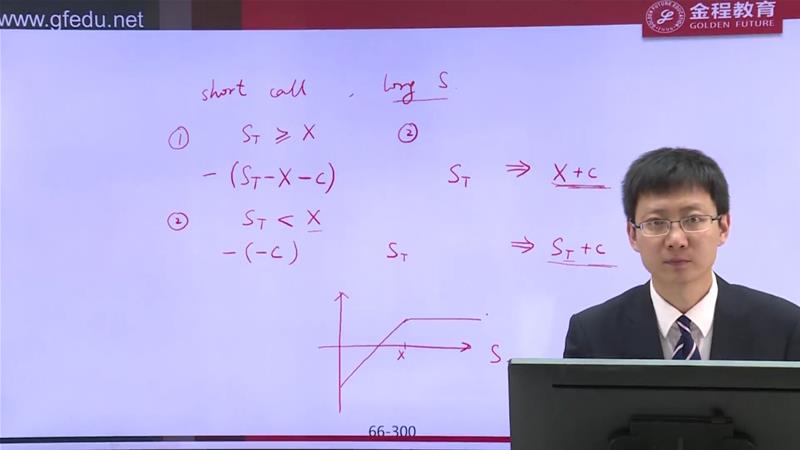 www.gfedu.net
金程教育
GOLDEN FUTURE
short call , long S
① S_T ≥ X ②
-(S_T-X-c) S_T ⇒ X+c
② S_T < X
-(-c) S_T ⇒ S_T+c
X
S
66-300